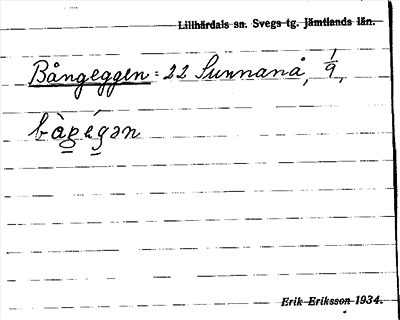 Lillhärdals sn. Svegs tg. Jämtlands län.
Bångeggen = 22 Sunnanå, 1/9,
Erik Eriksson 1934.